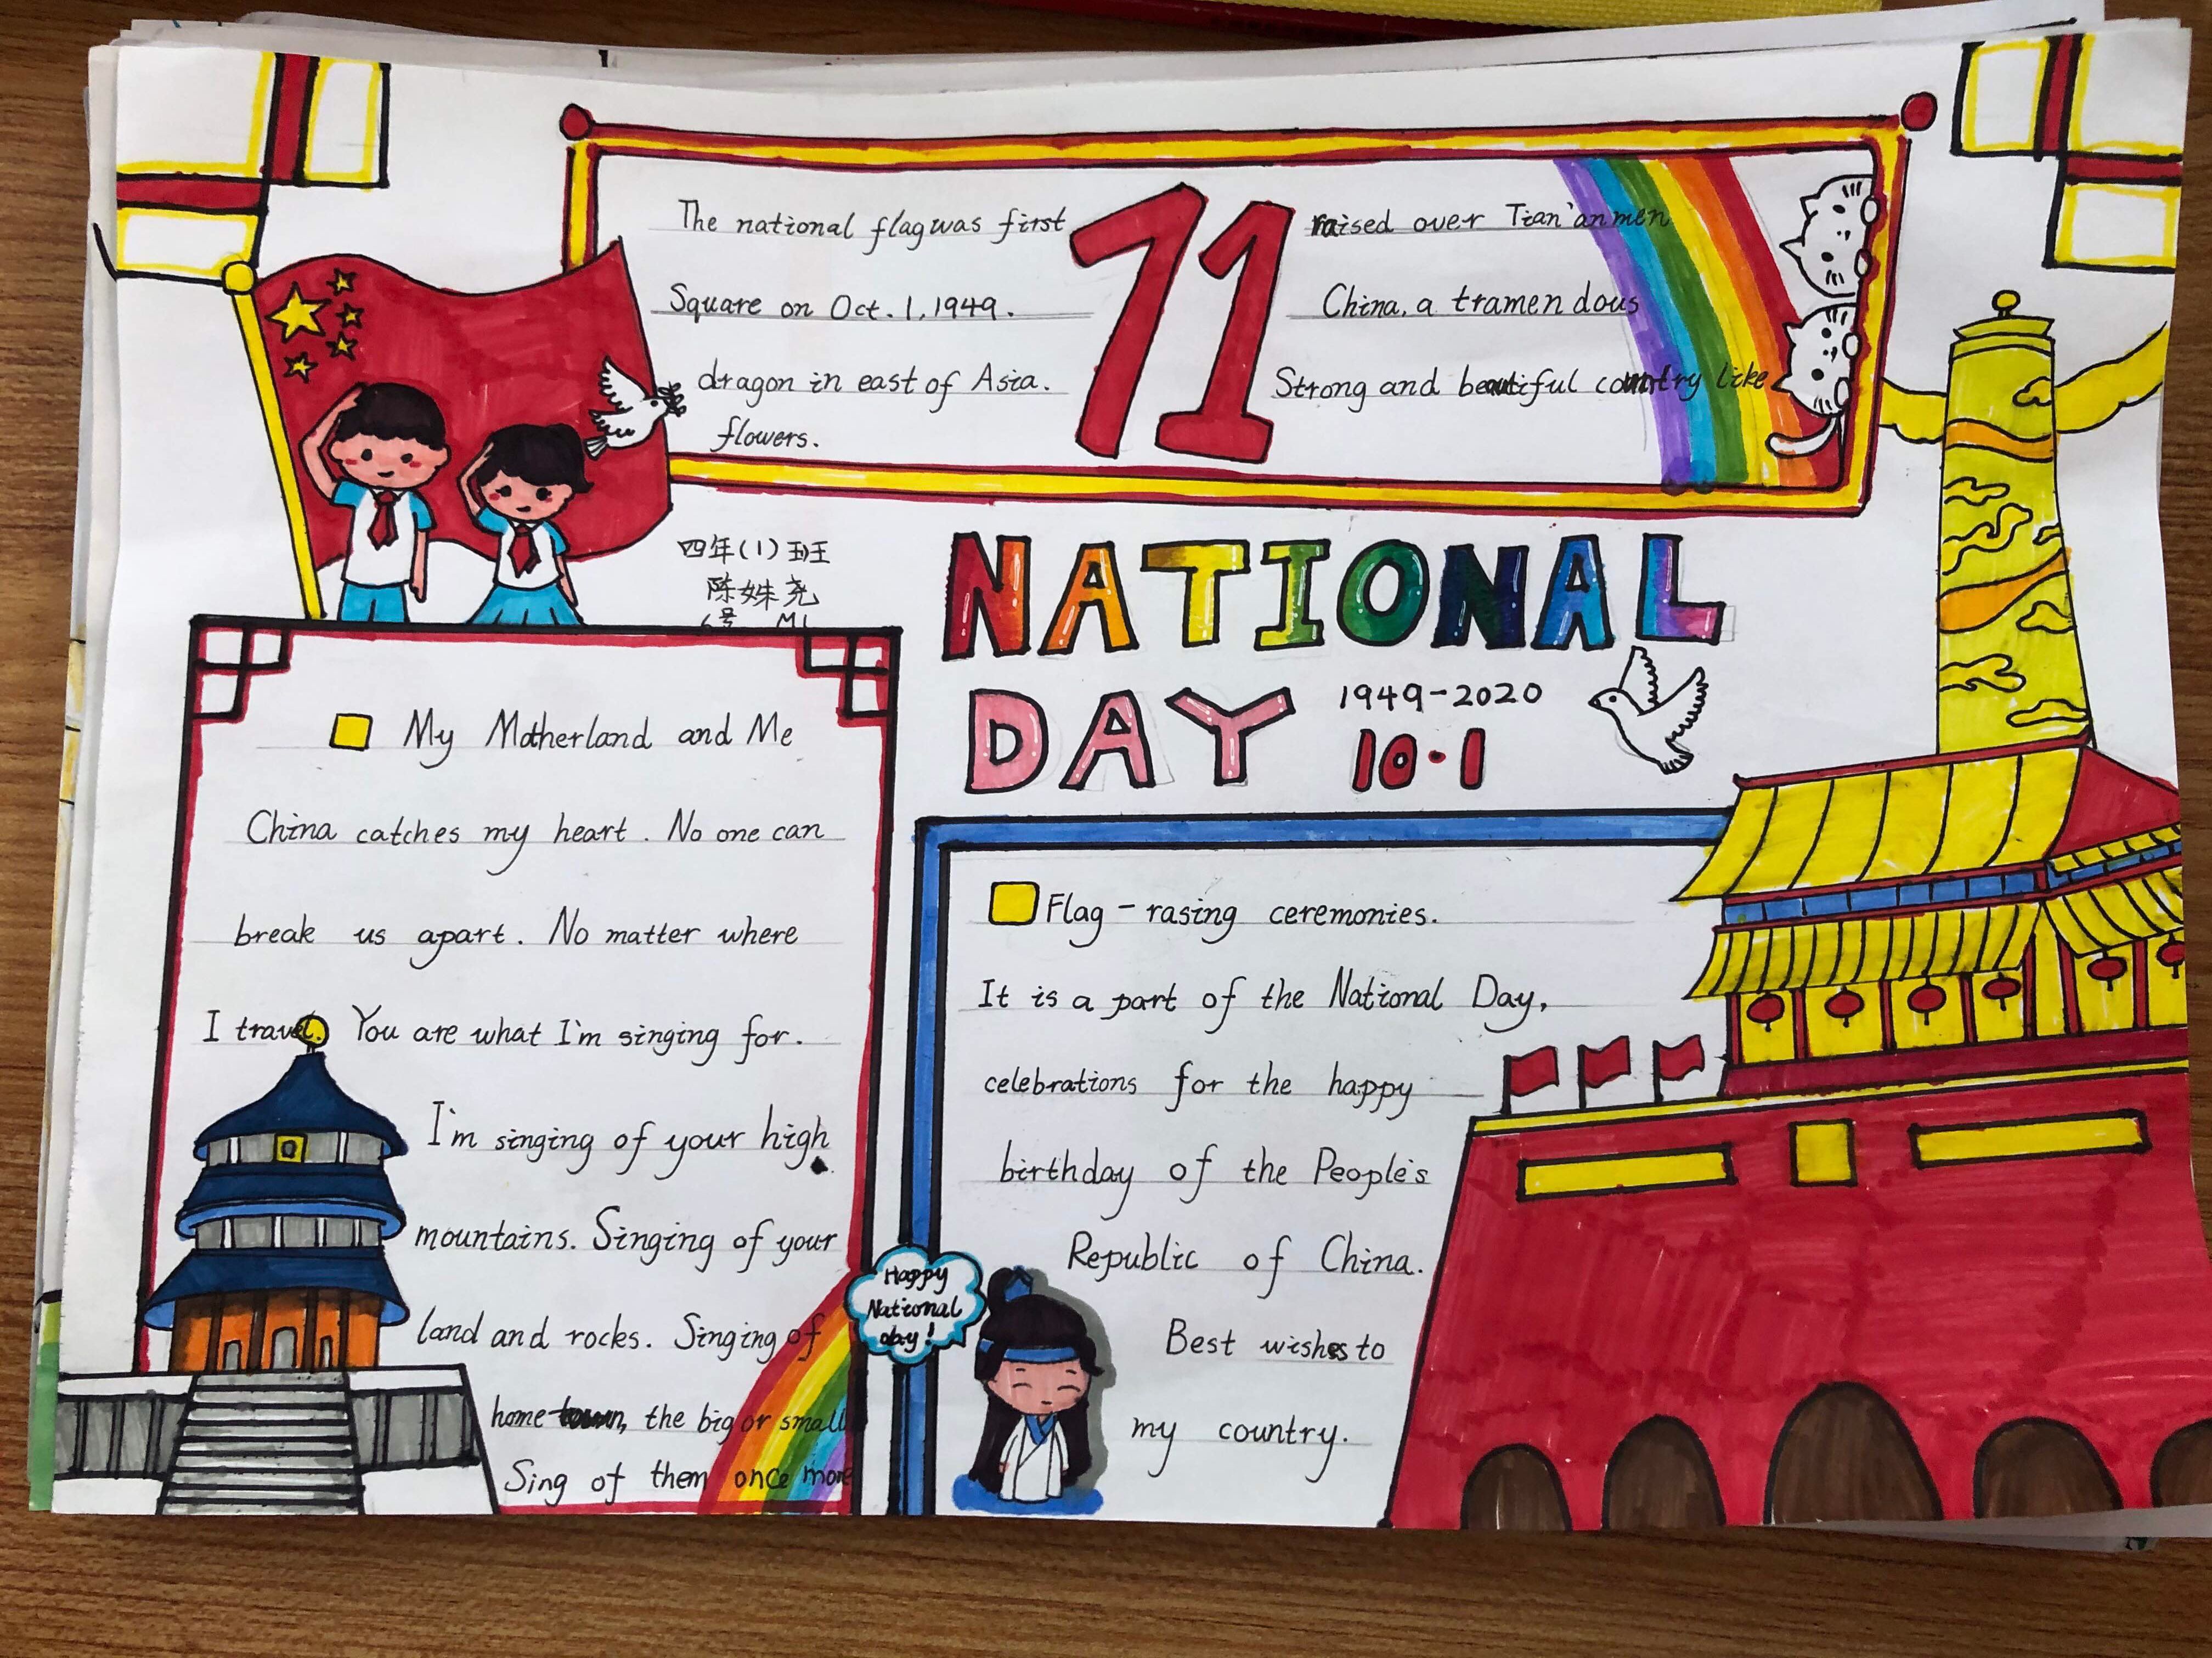 The national flag was first 71 raised over Tian'anmen
Square on Oct. 1, 1949. China, a tramendous
dragon in east of Asia. Strong and beautiful country like
flowers.
四年(1)班
陈姝尧
6号 M1
NATIONAL
DAY 1949-2020
10·1
My Motherland and Me
China catches my heart. No one can
break us apart. No matter where
I travel. You are what I'm singing for.
I'm singing of your high
mountains. Singing of your
land and rocks. Singing of
home town, the big or small
Sing of them once more
Happy
National
day!
Flag-rasing ceremonies.
It is a part of the National Day,
celebrations for the happy
birthday of the People's
Republic of China.
Best wishes to
my country.